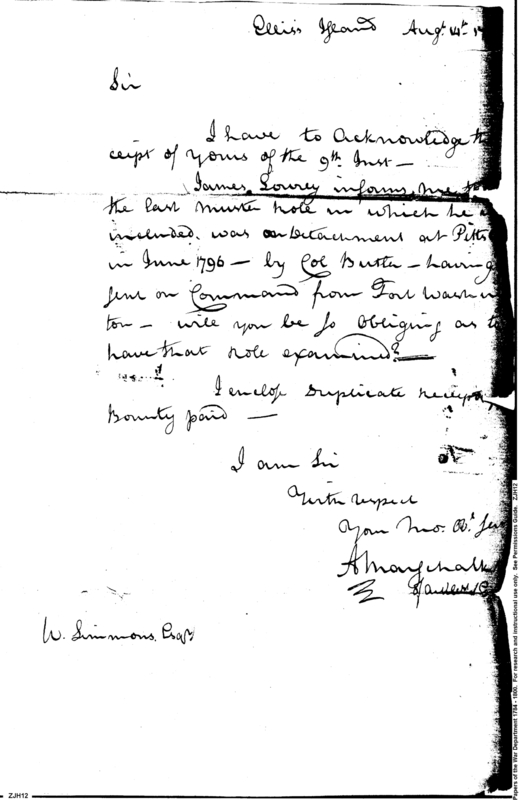 Ellis's Island Augt. 14th. 17
Sir
I have to Acknowledge th
ceipt of yours of the 9th. Inst —
James Lowrey informs me th
the last muster role in which he
included. was on Detachment at Pitts
in June 1796 — by Col Butler — having
sent on Command from Fort Washin
ton — will you be so Obliging as to
have that role examined? —
I enclose Duplicate
Bounty paid —
I am Sir
With respect
Your Mo. Ob. Ser
A Marschalk
W. Simmons Esqr
ZJH12
Papers of the War Department 1784 - 1800. For research and instructional use only. See Permissions Guide. ZJH12